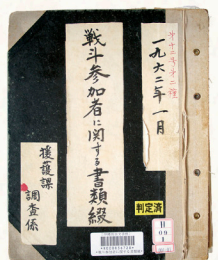 一九六二年一月
戦斗参加者に関する書類綴
援護課
調査係
判定済